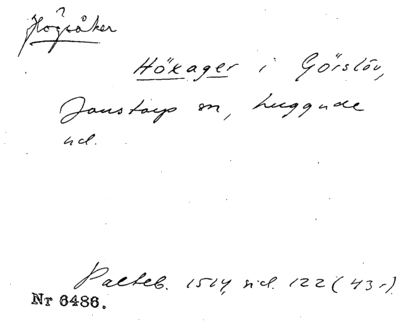 ?
Högsåker
Hökager i Görslöv,
Jonstorps sn, Luggude
hd.
Palteb. 1514, sid. 122 (43 r).
Nr 6486.